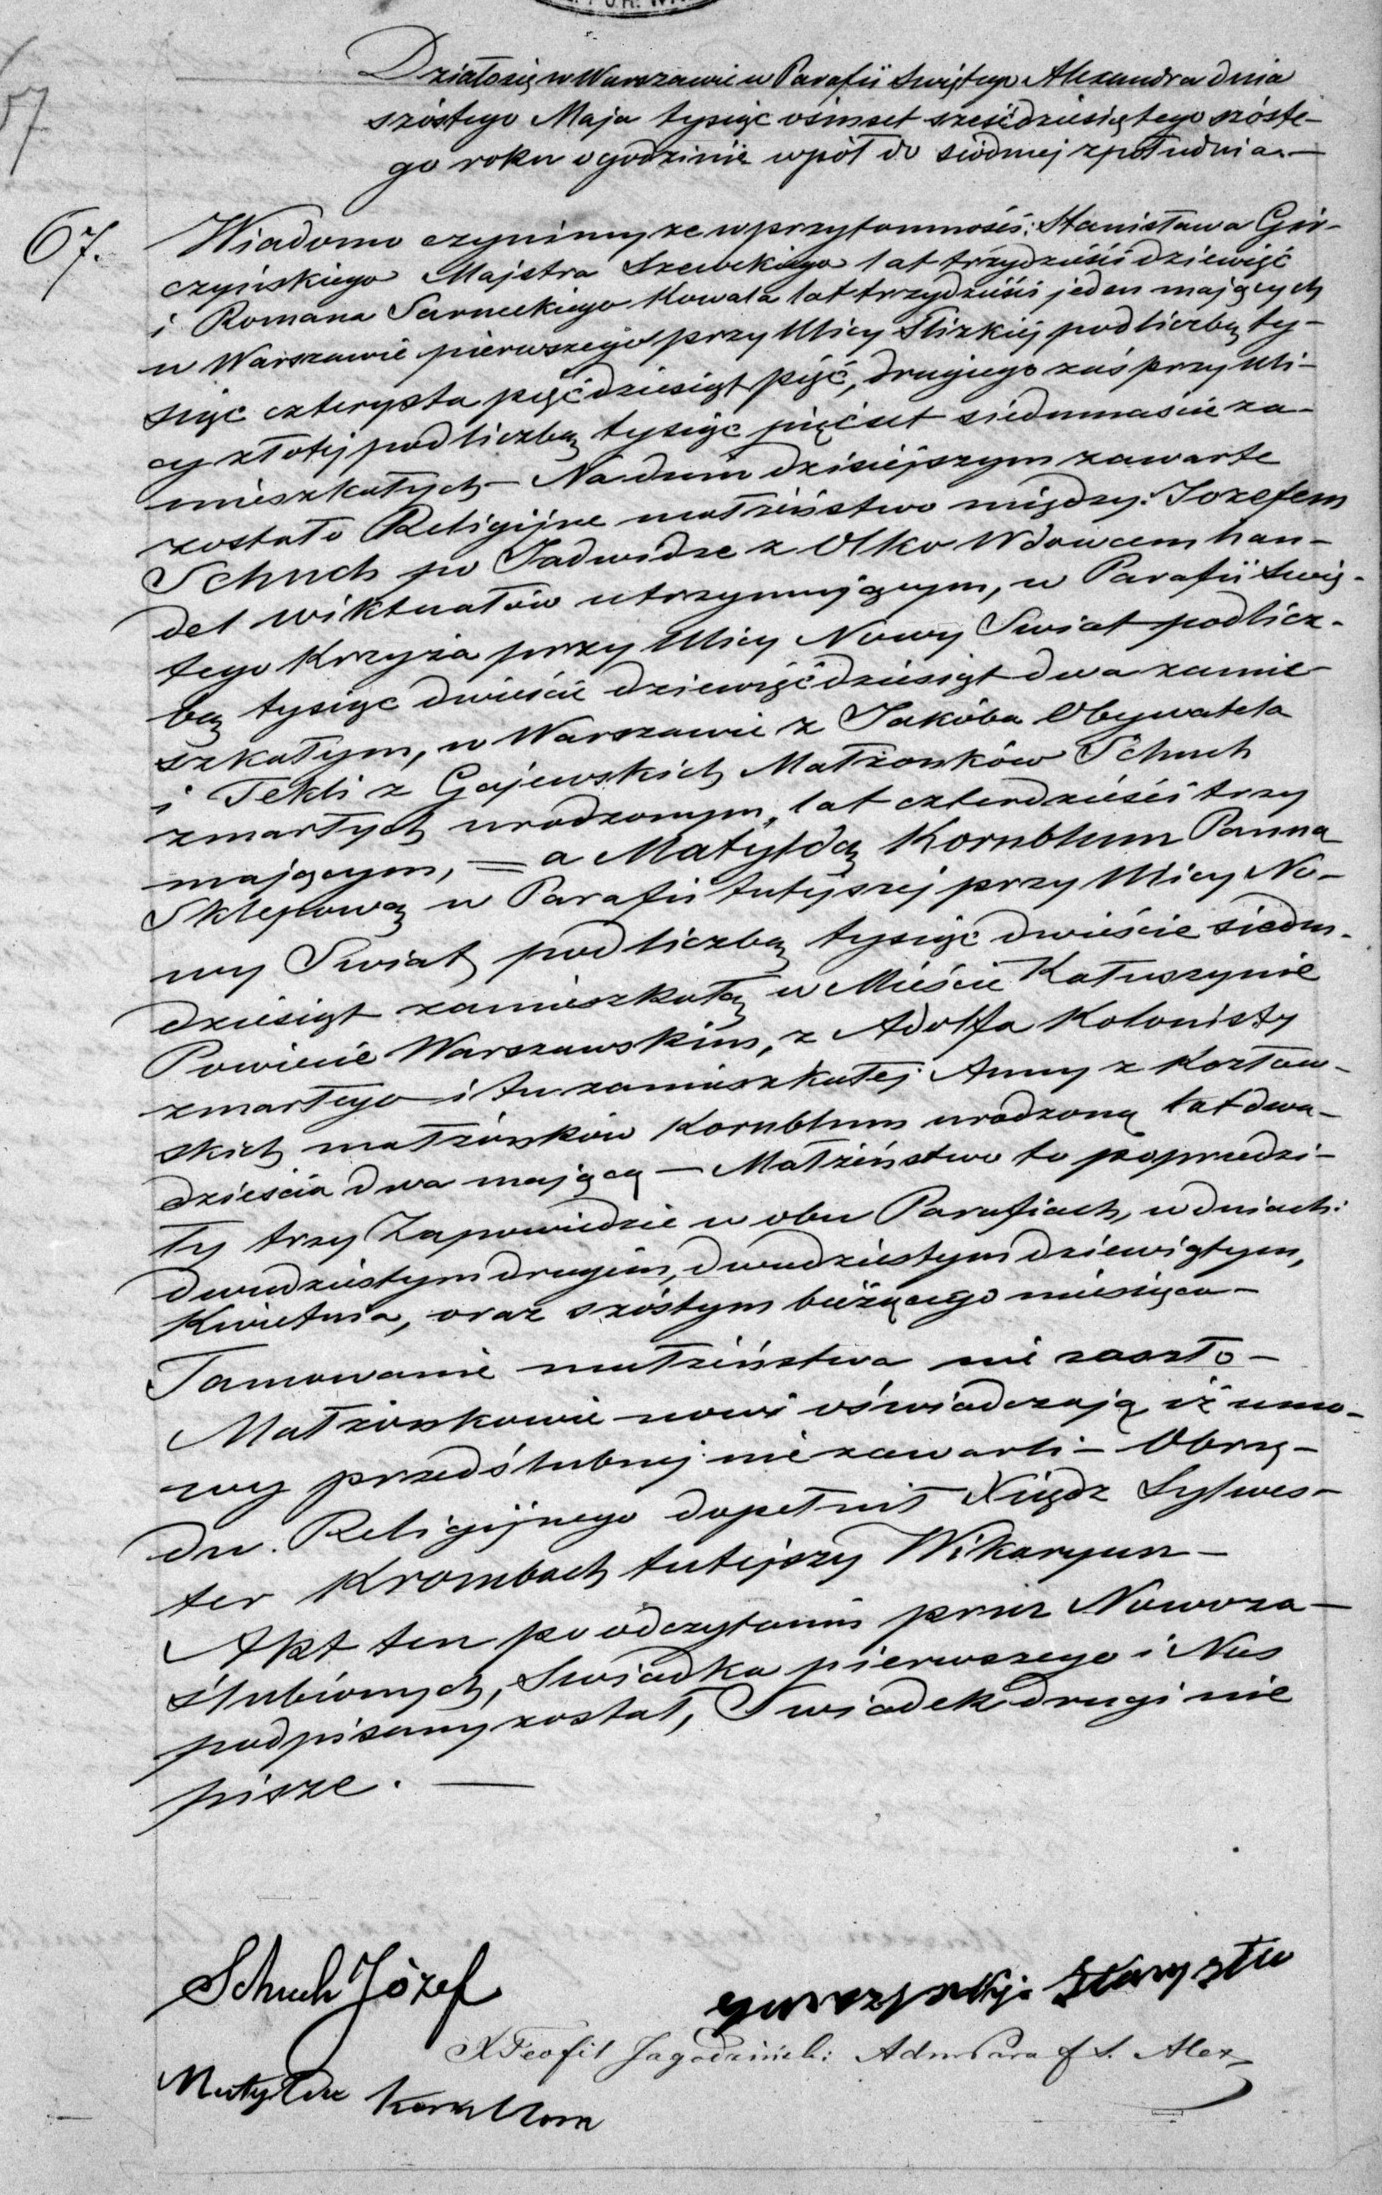 57
Działo się w Warszawie w Parafii Świętego Alexandra dnia
szóstego Maja tysiąc ośmset sześćdziesiątego szóste-
go roku o godzinie wpół do siódmej z południa.—
67.
Wiadomo czynimy że w przytomności: Stanisława Gór-
czyńskiego Majstra Szewckiego lat trzydzieści dziewięć
i Romana Sarneckiego Kowala lat trzydzieści jeden mających
w Warszawie pierwszego przy Ulicy Slizkiej pod liczbą ty-
siąc czterysta pięćdziesiąt pięć, drugiego zaś przy Uli-
cy złotej pod liczbą tysiąc pięćset siedmnaście za-
mieszkałych — Na dniu dzisiejszym zawarte
zostało Religijne małżeństwo między: Jozefem
Schuch po Jadwidze z Olko Wdowcem han-
del wiktuałów utrzymującym, w Parafii Swię-
tego Krzyża przy Ulicy Nowy Swiat pod licz-
bą tysiąc dwieście dziewięćdziesiąt dwa zamie-
szkałym, w Warszawie z Jakóba Obywatela
i Tekli z Gajewskich Małżonków Schuch
zmarłych urodzonym, lat czterdzieści trzy
mającym, — a Matyldą Kornblum Panną
Sklepową w Parafii tutejszej przy Ulicy No-
wy Swiat pod liczbą tysiąc dwieście siedm-
dziesiąt zamieszkałą w Mieście Kałuszynie
Powiecie Warszawskim, z Adolfa Kolonisty
zmarłego i tu zamieszkałej Anny z Kozłow-
skich małżonków Kornblum urodzoną lat dwa-
dzieścia dwa mającą — Małżeństwo to poprzedzi-
ły trzy Zapowiedzie w obu Parafiach, w dniach:
dwudziestym drugim, dwudziestym dziewiątym,
Kwietnia, oraz szóstym bieżącego miesiąca —
Tamowanie małżeństwa nie zaszło —
Małżonkowie nowi oświadczają iż umo-
wy przedślubnej nie zawarli — Obrzę-
du Religijnego dopełnił Xiądz Sylwes-
ter Krombach tutejszy Wikaryusz —
Akt ten po odczytaniu przez Nowoza-
ślubionych, Świadka pierwszego i Nas
podpisany został, Swiadek drugi nie
pisze. —
Schuch Józef
X Teofil Jagodziński Adm Para f S. Alex
Matylda